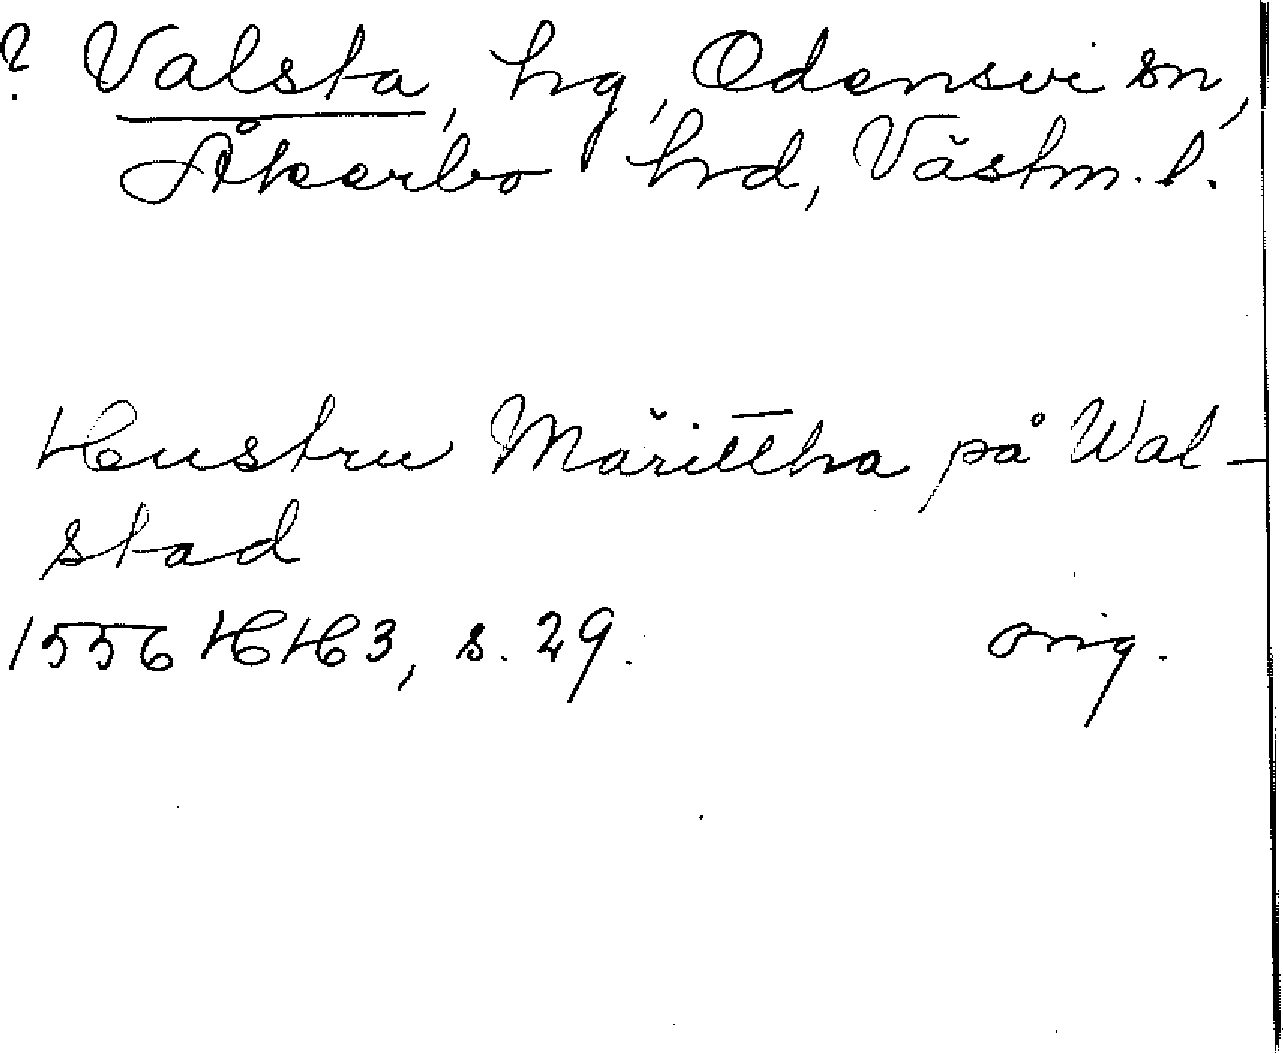 ? Valsta, hg, Odensvi sn,
Åkerbo hrd, Västm. l.
Hustru Märittha på Wal-
stad
1556 HH3, s. 29. orig.